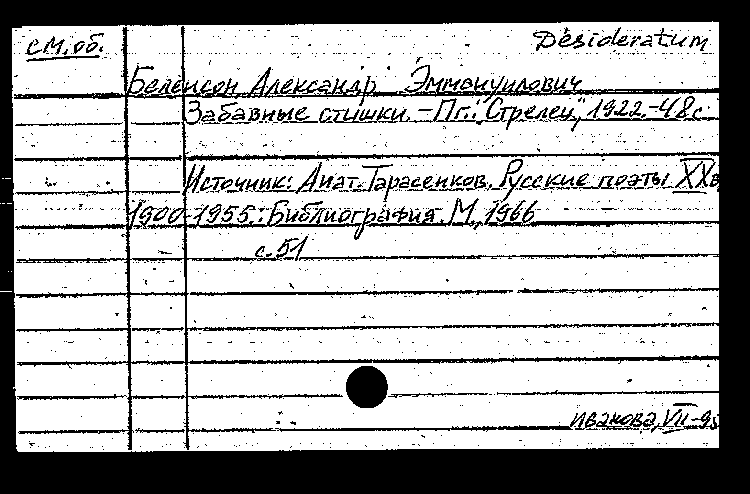 см. об.
Desideratum
Беленсон Александр Эммануилович
Забавные стишки. - Пг.: "Стрелец", 1922. - 48 с.
Источник: Анат. Тарасенков. Русские поэты XX в.
1900-1955.: Библиография. М., 1966
с. 51
Иванова, VII-95